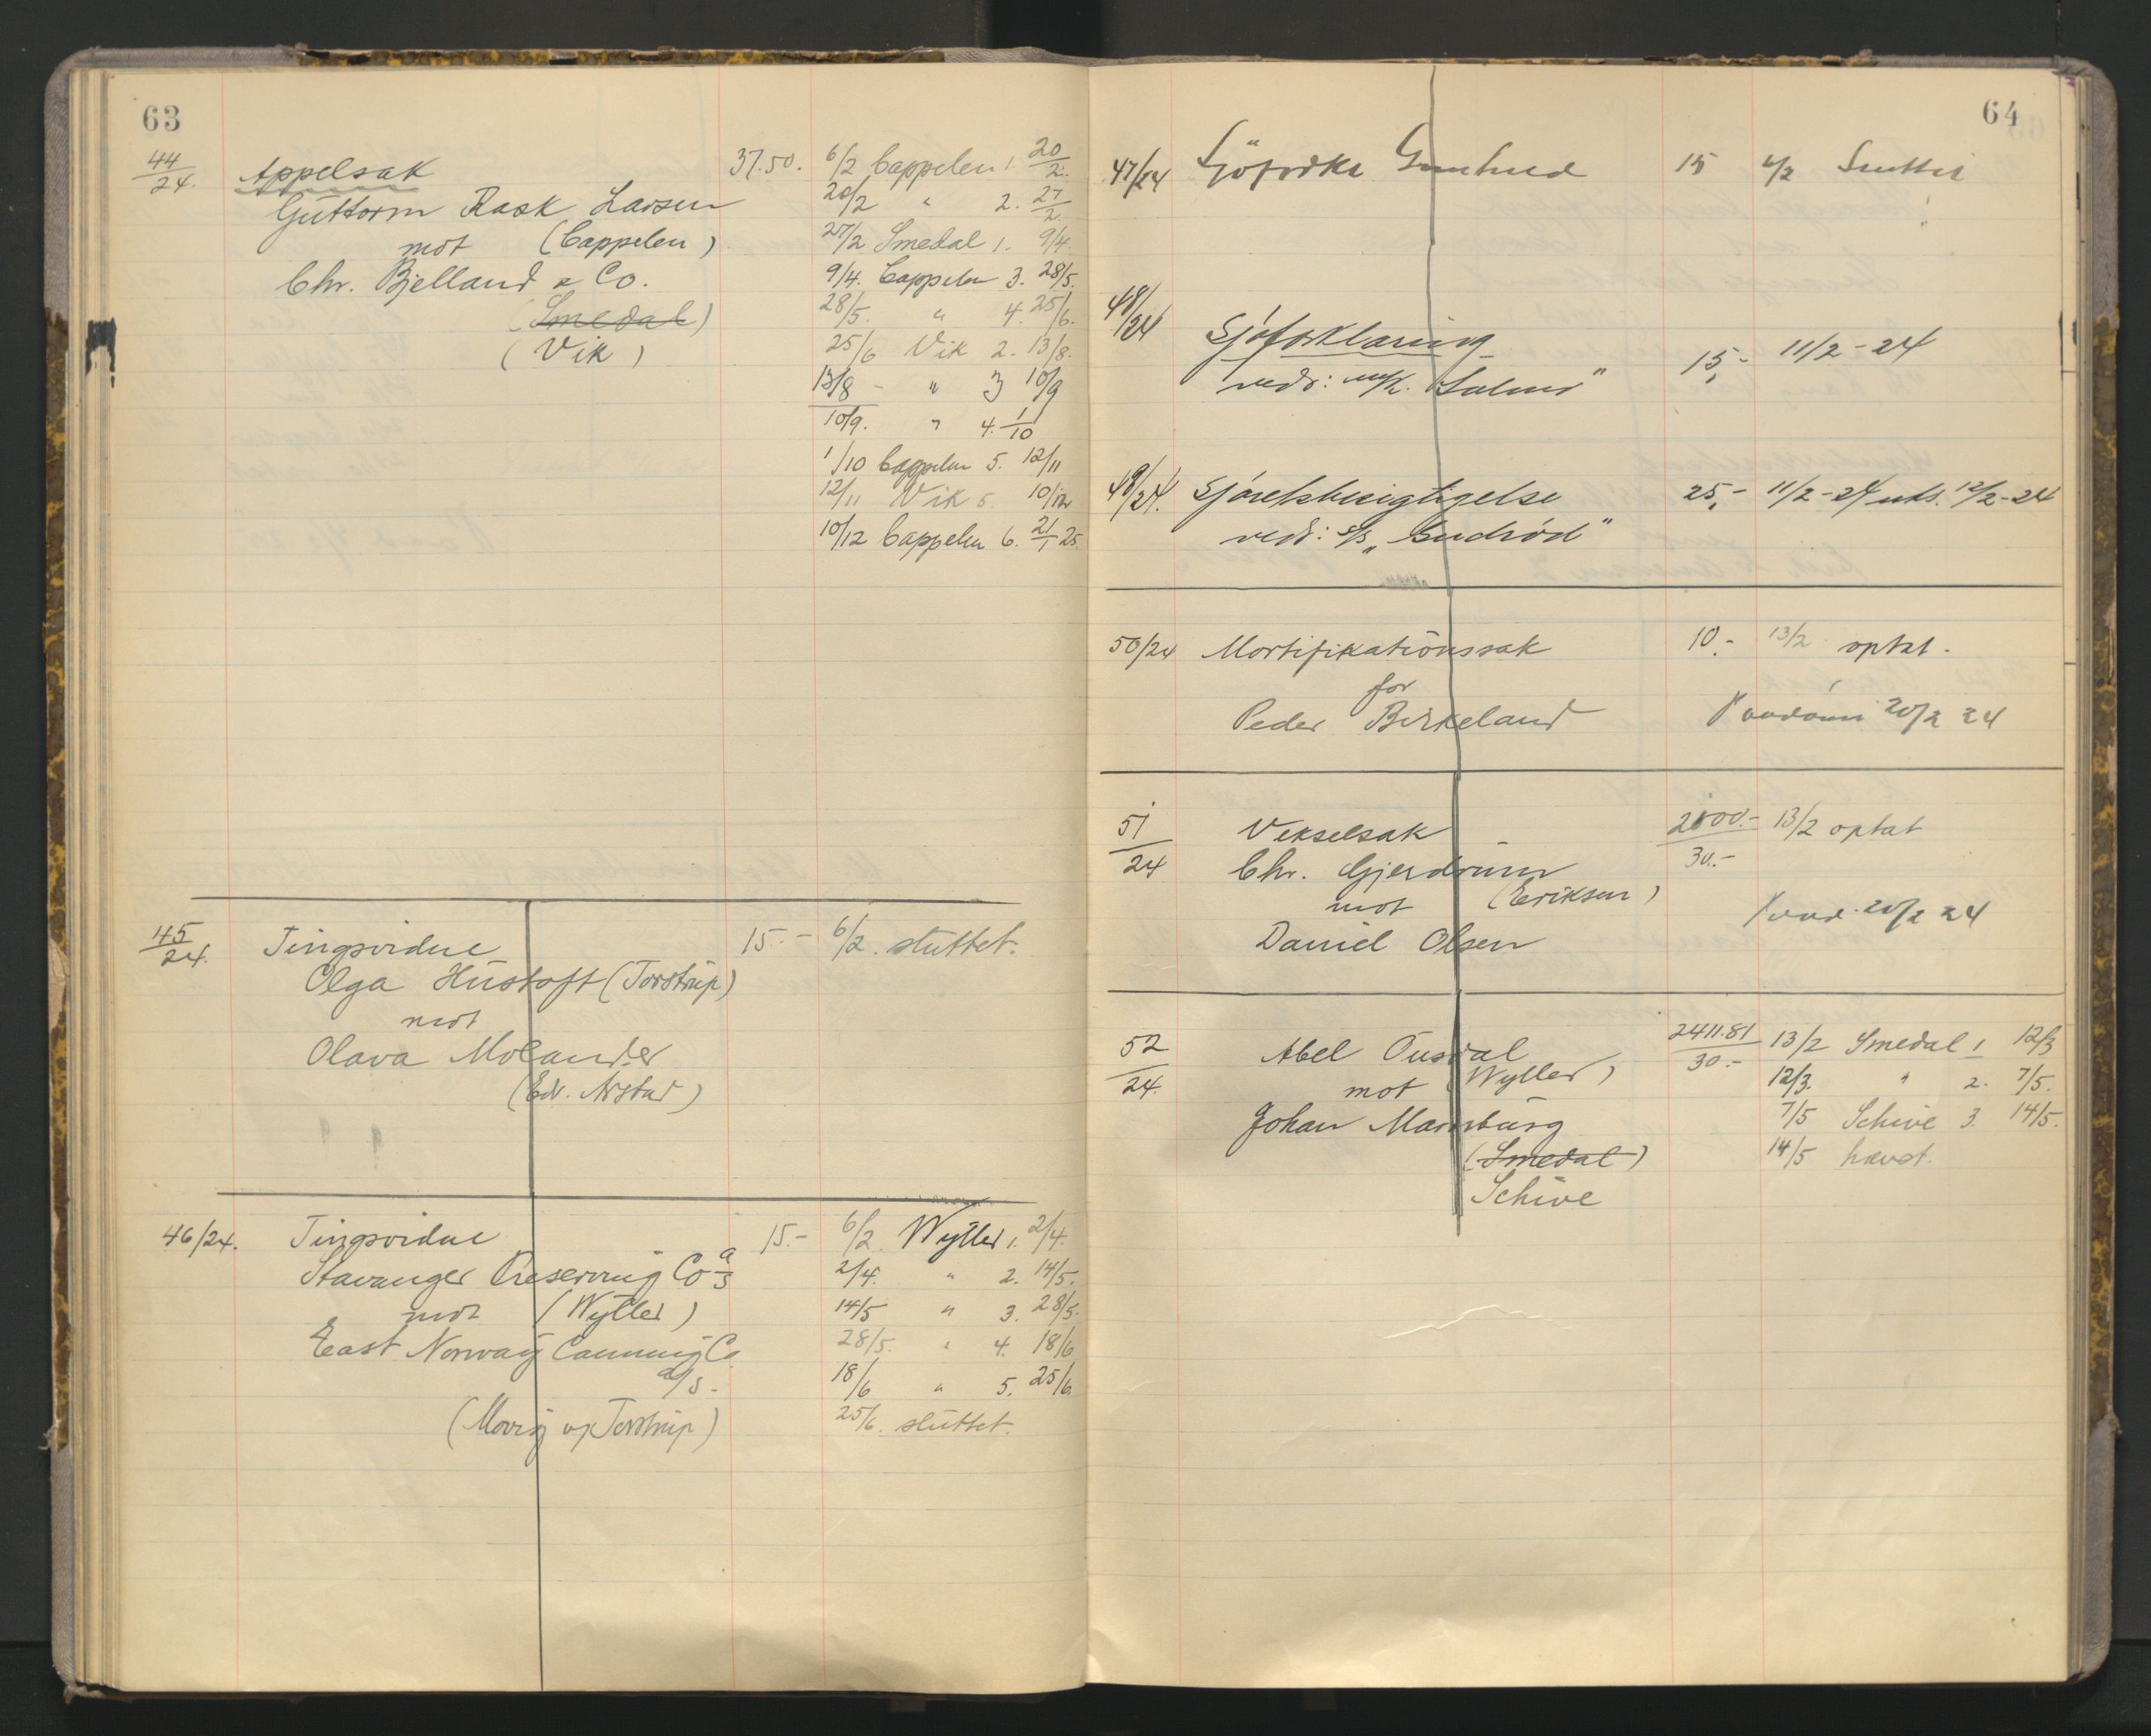 63
44/24. Appelsak 37.50. 6/2 Cappelen 1. 20/2.
Guttorm Rask Larsen 20/2 " 2. 27/2.
mot (Cappelen) 27/2 Smedal 1. 9/4.
Chr. Bjelland & Co. 9/4. Cappelen 3. 28/5.
(Smedal) 28/5. " 4. 25/6.
(Vik) 25/6 Vik 2. 13/8.
13/8 - " 3 10/9
10/9. " 4. 1/10
1/10 Cappelen 5. 12/11
12/11 Vik 5. 10/12
10/12 Cappelen 6. 21/1 25.
45/24. Tingsvidne 15.- 6/2. sluttet.
Olga Hustoft (Torstrup)
mot
Olava Molander
(Edv. Arstad)
46/24. Tingsvidne 15.- 6/2. Wyller 1. 2/4.
Stavanger Preserving Co a/s 2/4. " 2. 14/5.
mot (Wyller) 14/5 " 3. 28/5.
East Norway Canning Co 28/5. " 4. 18/6
a/s. 18/6 " 5. 25/6.
(Movig og Torstrup) 25/6. sluttet.
64
47/24 15
48/24 Sjøforklaring 15,- 11/2-24
vedr: m/k.
49/24. Sjøretsbesigtigelse 25,- 11/2-24 uts. 12/2-24
vedr: s/s „Gudrød"
50/24 Mortifikationssak 10.- 13/2 optat.
for
Peder Birkeland 20/2 24
51/24 Vekselsak 2000.-/30.- 13/2 optat
Chr. Gjerdrum
mot (Eriksen)
20/2 24
Daniel Olsen
52/24. Abel Ousdal 2411.81/30.- 13/2 Smedal 1 12/3
mot (Wyller) 12/3. " 2. 7/5.
Johan Marnburg 7/5 Schive 3. 14/5.
(Smedal) 14/5 hævet.
Schive